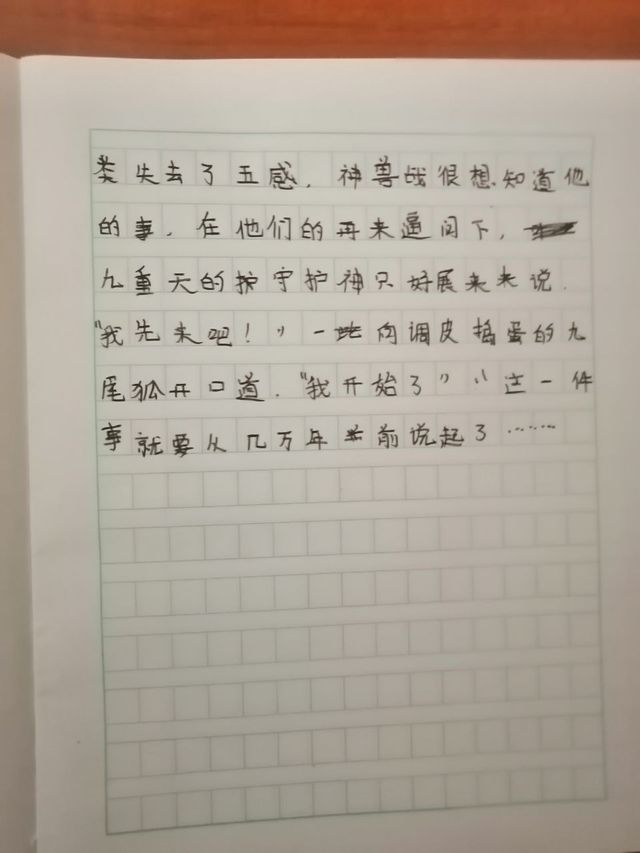 类失去了五感，神兽战很想知道他
的事，在他们的再来逼问下，
九重天的护守护神只好展来来说．
“我先来吧！”一向调皮捣蛋的九
尾狐开口道．“我开始了”“这一件
事就要从几万年前说起了……